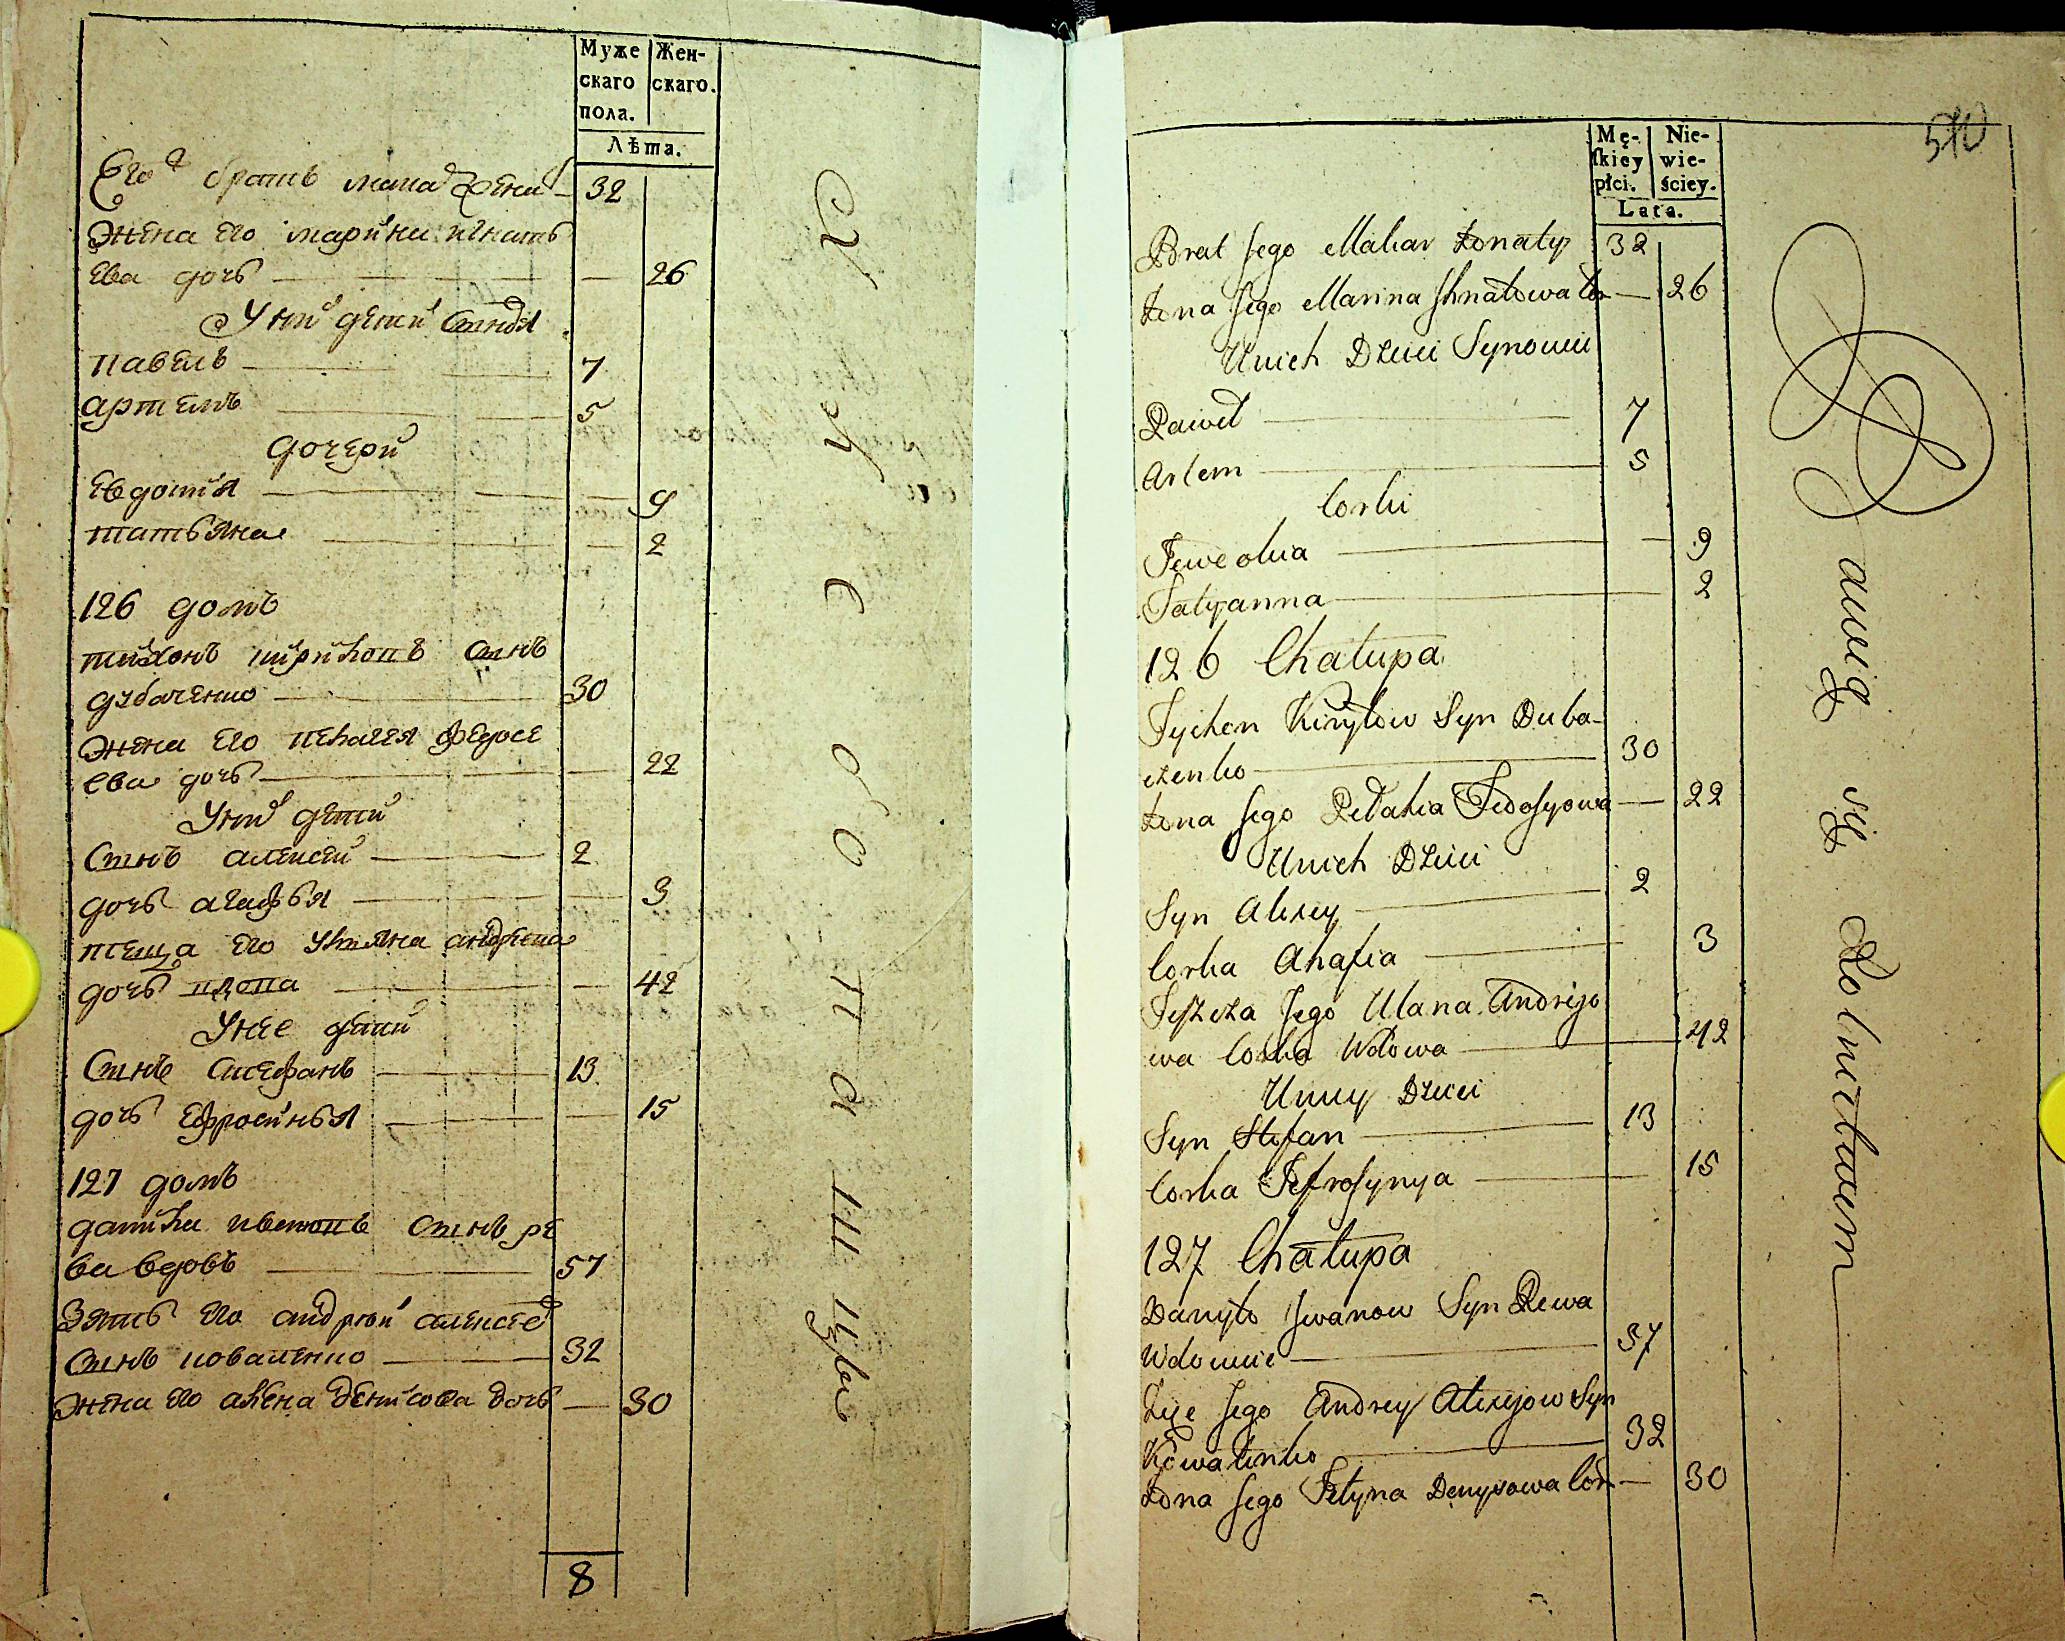 Муже
скаго
пола.
Жен-
скаго.
Лѣта.
Его братъ макар жена 32
Жена его марина игнать
ева дочь 26
У них дети сыновя
павелъ 7
артемъ 5
дочери
евдотия 9
татьяна 2
126 домъ
тихонъ кириловъ сынъ
дубаченко 30
жена его пелагея федосе
ева дочь 22
У них дети
сынъ алексей 2
дочь агафья 3
теща его ульяна андреева
дочь вдова 42
У нее дети
сынъ стефанъ 13
дочь ефросинья 15
127 домъ
данила ивановъ сынъ ре
ва вдовъ 57
Зять его андрей алексеев
сынъ коваленко 32
жена его алена денисова дочь 30
8
510
Mę-
ſkiey
płci.
Nie-
wie-
ściey.
Lata.
Brat Jego Makar Żonaty 32
Żona Jego Marina Ihnatowa Cor 26
U nich Dzieci Synowie
Paweł 7
Artem 5
Corki
Jewdokia 9
Tatyanna 2
126 Chałupa
Tychon Kiryłow Syn Duba-
czenko 30
Żona Jego Pełahia Fedosyowa 22
U nich Dzieci
Syn Alexey 2
Corka Ahafia 3
Teszcza Jego Ulana Andrijo
wa Corka Wdowa 42
U niey Dzieci
Syn Stefan 13
Corka Jefrosynya 15
127 Chałupa
Danyło Iwanow Syn Rewa
Wdowiec 57
Zięć Jego Andrey Alexyow Syn
Kowalenko 32
Żona Jego Denysowa Cor 30